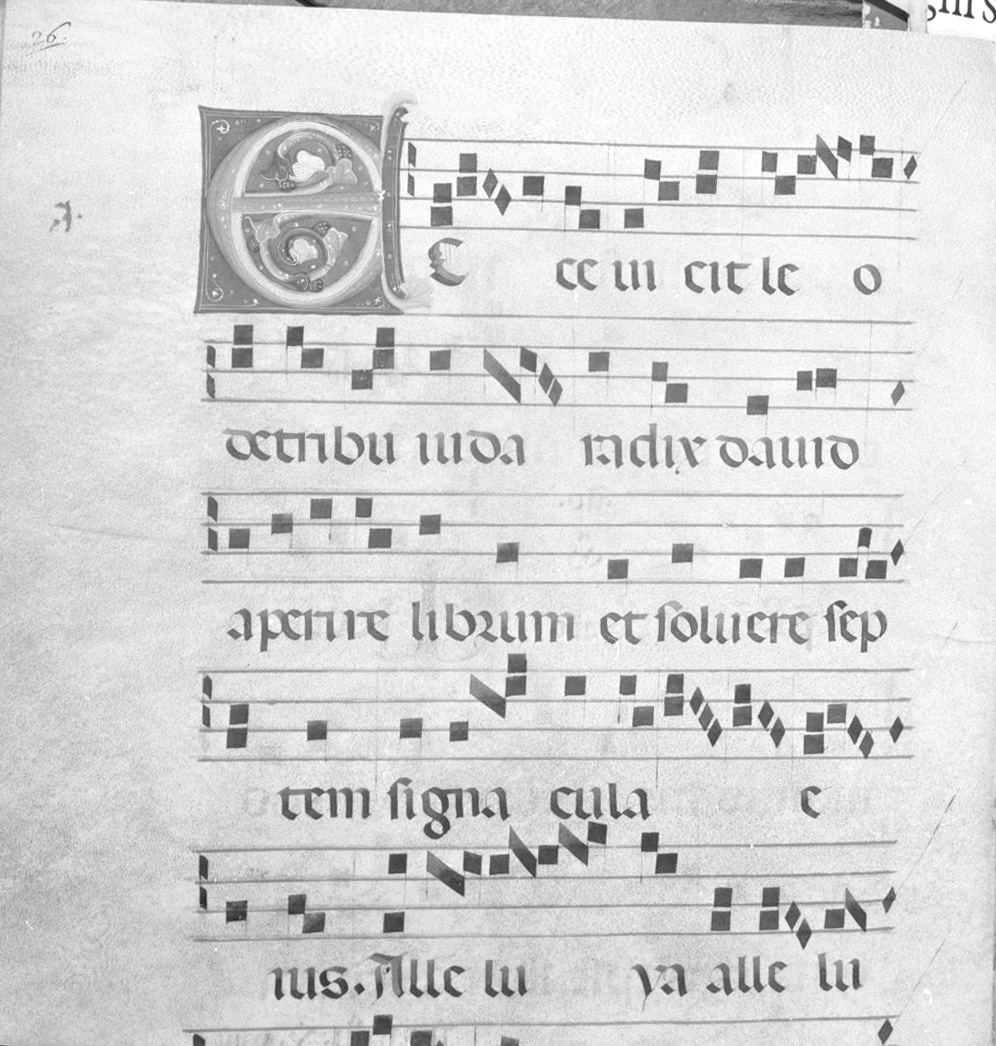 26.
E C ce in cit le o
de tribu iuda radix dauid
aperire librum et soluere sep
tem signa cula e
ius. Alle lu ya alle lu